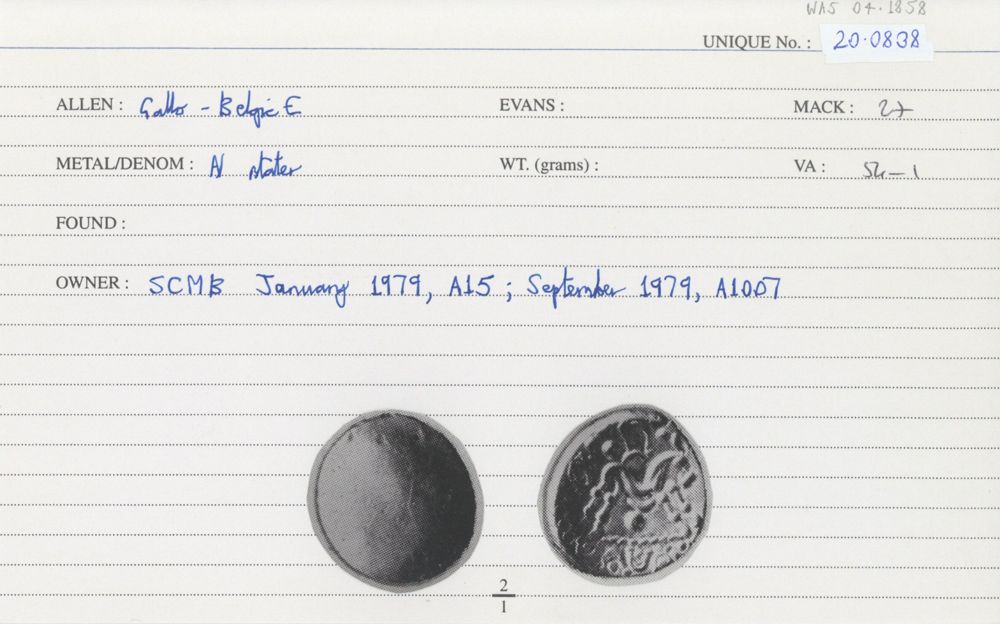 WAS 04.1858
UNIQUE No. : 20.0838
ALLEN : Gallo - Belgic E EVANS : MACK : 27
METAL/DENOM : N stater WT. (grams) : VA : 54-1
FOUND :
OWNER : SCMB January 1979, A15 ; September 1979, A1007
2
1